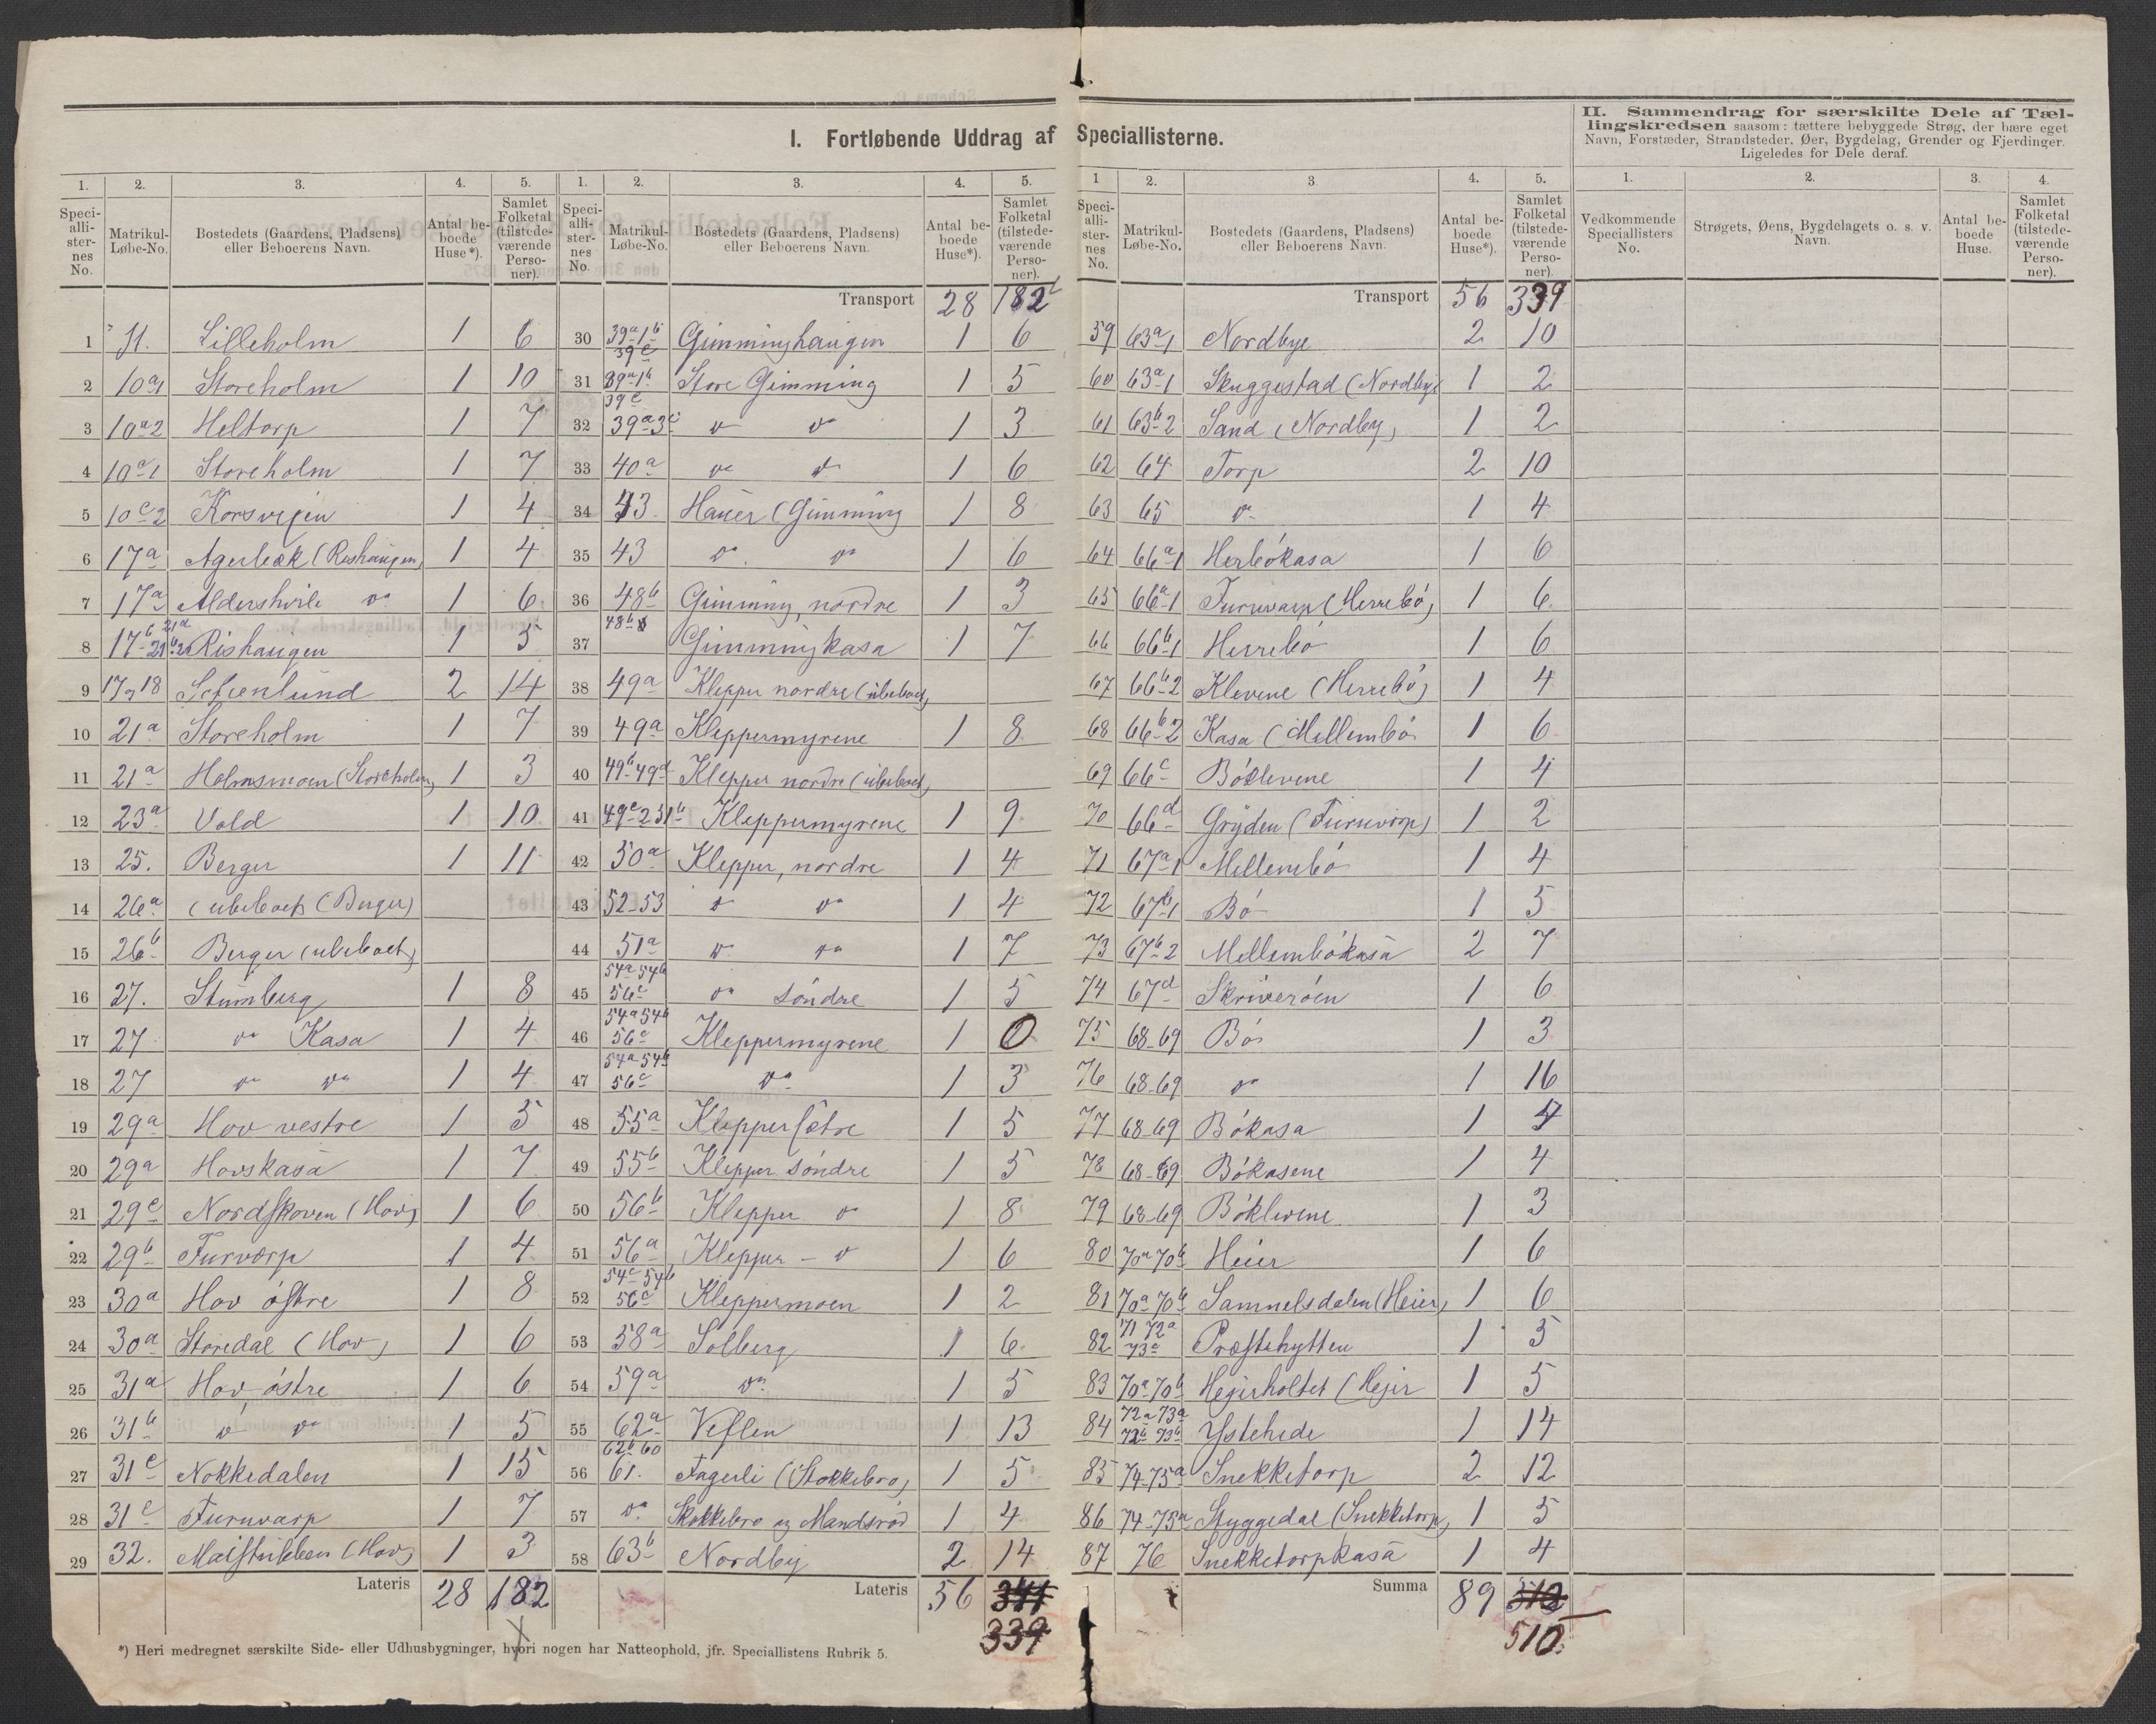 I. Fortløbende Uddrag af Speciallisterne.
II. Sammendrag for særskilte Dele af Tæl-
lingskredsen saasom: tættere bebyggede Strøg, der bære eget
Navn, Forstæder, Strandsteder, Øer, Bygdelag, Grender og Fjerdinger.
Ligeledes for Dele deraf.
1. 2. 3. 4. 5.
Speci-alli-ster-nes No. Matrikul-Løbe-No. Bostedets (Gaardens, Pladsens) eller Beboerens Navn. Antal be-boede Huse*). Samlet Folketal (tilstede-værende Perso-ner).
1 11. Lilleholm 1 6
2 10a1 Storeholm 1 10
3 10a2 Heltorp 1 7
4 10c1 Storeholm 1 7
5 10c2 Korsvejen 1 4
6 17a Agerbæk (Rishaugen) 1 4
7 17a Aldershvile do 1 6
8 17b 21a 21b2 Rishaugen 1 5
9 17 18 Schenlund 2 14
10 21a Storeholm 1 7
11 21a Holmsmoen (Storeholm) 1 3
12 23a Vold 1 10
13 25. Berger 1 11
14 26a (ubeboet) (Berger)
15 26b Berger (ubeboet)
16 27. Stumberg 1 8
17 27 do Kasa 1 4
18 27 do do 1 4
19 29a Hov vestre 1 5
20 29a Hovskasa 1 7
21 29c Nordskoven (Hov) 1 6
22 29b Furvorp 1 4
23 30a Hov østre 1 8
24 30a Storedal (Hov) 1 6
25 31a Hov østre 1 6
26 31b do do 1 5
27 31c Nokkedalen 1 15
28 31c Furuvarp 1 7
29 32. Maistubben (Hov) 1 3
Lateris 28 182
1. 2. 3. 4. 5.
Speci-alli-ster-nes No. Matrikul-Løbe-No. Bostedets (Gaardens, Pladsens) eller Beboerens Navn. Antal be-boede Huse*). Samlet Folketal (tilstede-værende Perso-ner).
Transport 28 182
30 39a1b 39c Gimminghaugen 1 6
31 39a1b 39c Store Gimming 1 5
32 39a3c do do 1 3
33 40a do do 1 6
34 43 Hauer (Gimming 1 8
35 43 do do 1 6
36 48b Gimming, nordre 1 3
37 48b Gimmingkasa 1 7
38 49a Klepper nordre (ubeboet)
39 49a Kleppermyrene 1 8
40 49b 49d Klepper nordre (ubeboet)
41 49c2 51b Kleppermyrene 1 9
42 50a Klepper, nordre 1 4
43 52-53 do do 1 4
44 51a do do 1 7
45 54a 54b 56c do søndre 1 5
46 54a 54b 56c Kleppermyrene 1 0
47 54a 54b 56c do 1 3
48 55a Kleppersætre 1 5
49 55b Klepper søndre 1 5
50 56b Klepper do 1 8
51 56a Klepper - do 1 6
52 54c 54b 56c Kleppermoen 1 2
53 58a Solberg 1 6
54 59a do 1 5
55 62a Veflen 1 13
56 62b 60 61. Fagerli (Stokkebro) 1 5
57 do Stokkebro og Mandsrød 1 4
58 63b Nordby 2 14
Lateris 56 341
339
1 2. 3 4. 5.
Speci-alli-ster-nes No. Matrikul-Løbe-No. Bostedets (Gaardens, Pladsens) eller Beboerens Navn. Antal be-boede Huse*). Samlet Folketal (tilstede-værende Perso-ner).
Transport 56 339
59 63a1 Nordbye 2 10
60 63a1 Skuggestad (Nordbye 1 2
61 63b2 Sand (Nordby) 1 2
62 64 Torp 2 10
63 65 do 1 4
64 66a1 Herbøkasa 1 6
65 66a1 Furuvarp (Herrebø) 1 6
66 66b1 Herrebø 1 6
67 66b2 Klevene (Herrebø) 1 4
68 66b2 Kasa (Mellembø 1 6
69 66c Bøklevene 1 4
70 66d Gryden (Furuvorp) 1 2
71 67a1 Mellembø 1 4
72 67b1 Bø 1 5
73 67b2 Mellembøkasa 2 7
74 67d Skriverøen 1 6
75 68-69 Bø 1 3
76 68-69 do 1 16
77 68-69 Bøkasa 1 4
78 68-69 Bøkasene 1 4
79 68-69 Bøklevene 1 3
80 70a 70b Heier 1 6
81 70a 70b Samuelsdalen (Heier) 1 6
82 71 72a 73c Præstehytten 1 5
83 70a 70b Hejerholtet (Hejer 1 5
84 72a 73a 72b 73b Ystehede 1 14
85 74-75a Snekketorp 2 12
86 74-75a Styggedal (Snekketorp) 1 5
87 76 Snekketorpkasa 1 4
Summa 89 512
510
1. 2. 3. 4.
Vedkommende Speciallisters No. Strøgets, Øens, Bygdelagets o. s. v. Navn. Antal be-boede Huse. Samlet Folketal (tilstede-værende Perso-ner).
*) Heri medregnet særskilte Side- eller Udhusbygninger, hvori nogen har Natteophold, jfr. Speciallistens Rubrik 5.